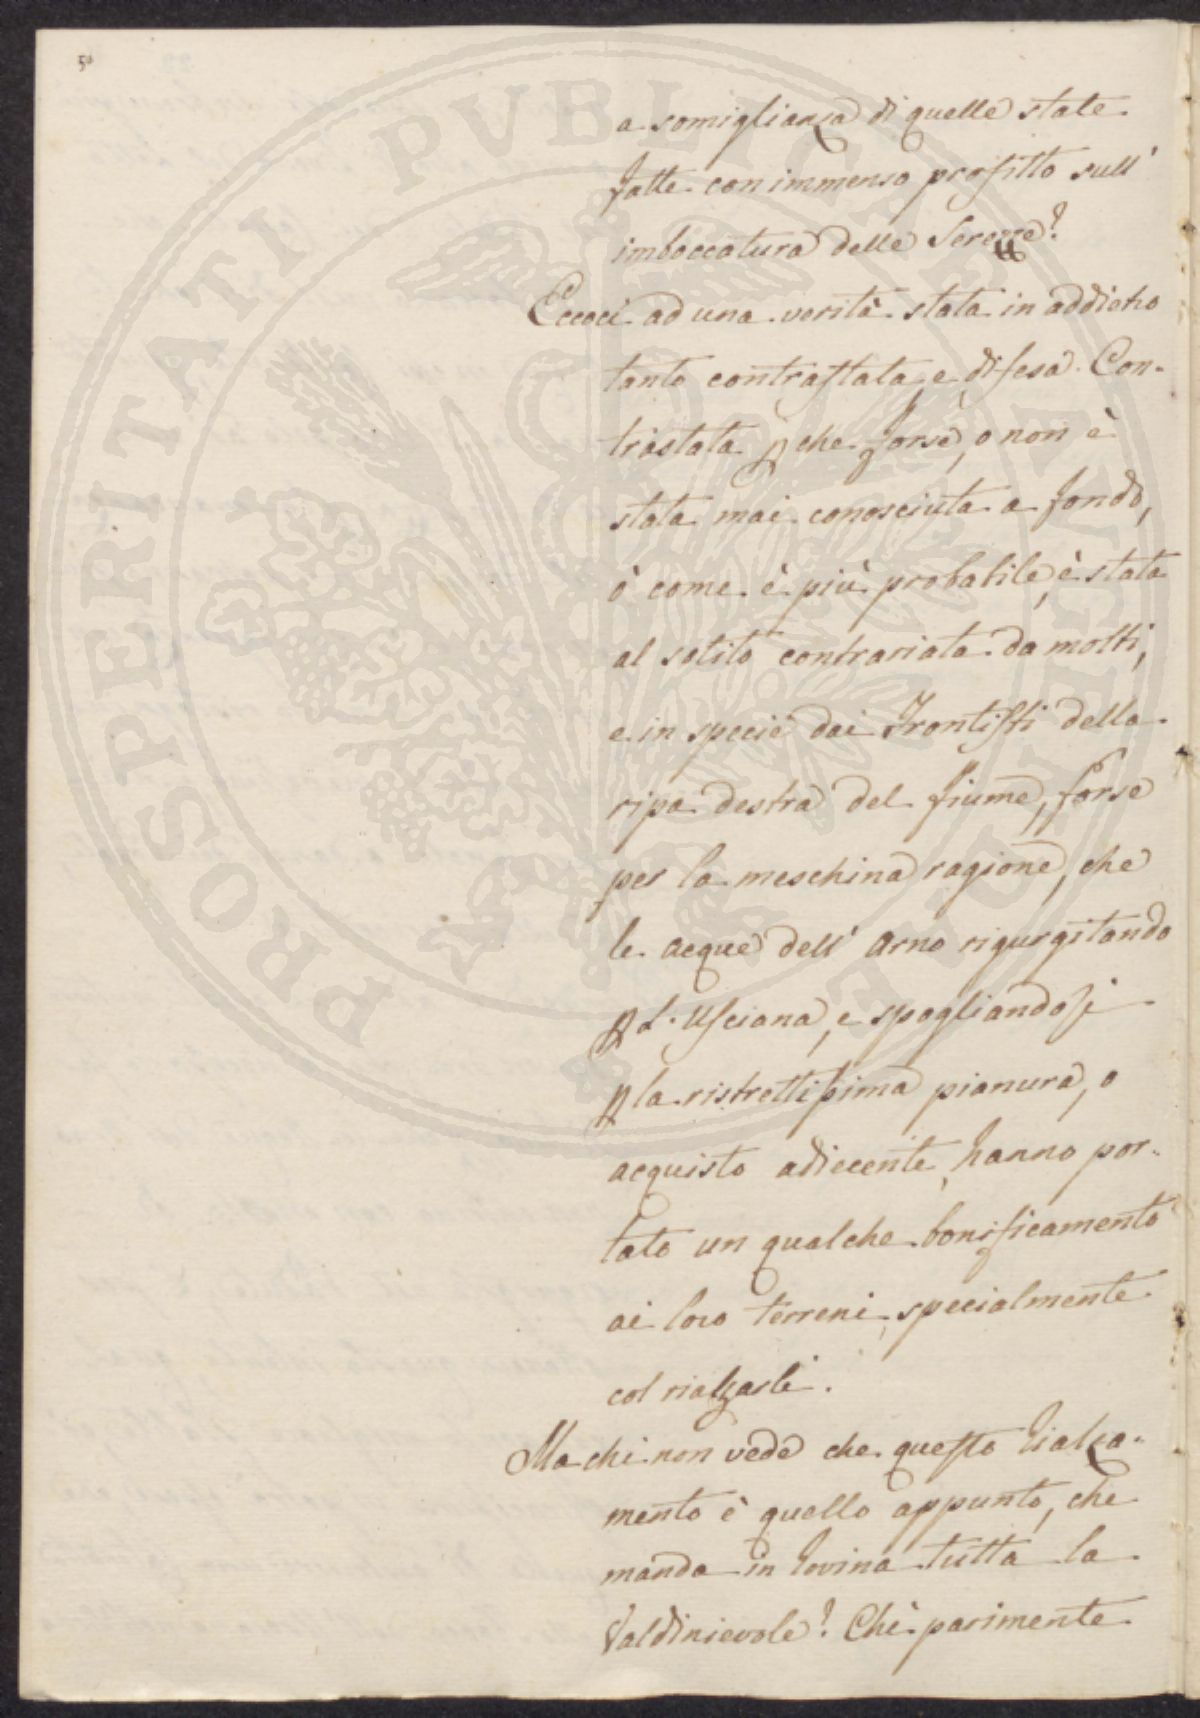 50
PROSPERITATI PUBLICAE AUGENDAE
a somiglianza di quelle state
fatte con immenso profitto sull'
imboccatura delle Serezze?
Eccoci ad una verità stata in addietro
tanto contrastata, e difesa. Con-
trastata ꝑ che forse, o non è
stata mai conosciuta a fondo,
ò come è più probabile, è stata
al solito contrariata da molti,
e in specie dai Frontisti della
ripa destra del fiume, forse
per la meschina ragione, che
le acque dell' Arno rigurgitando
ꝑ L'Usciana, e spagliandosi
ꝑ la ristrettissima pianura, o
acquisto adiecente, hanno por-
tato un qualche bonificamento
ai loro terreni, specialmente
col rialzarli.
Ma chi non vede che questo rialza-
mento è quello appunto, che
manda in rovina tutta la
Valdinievole? Chi parimente